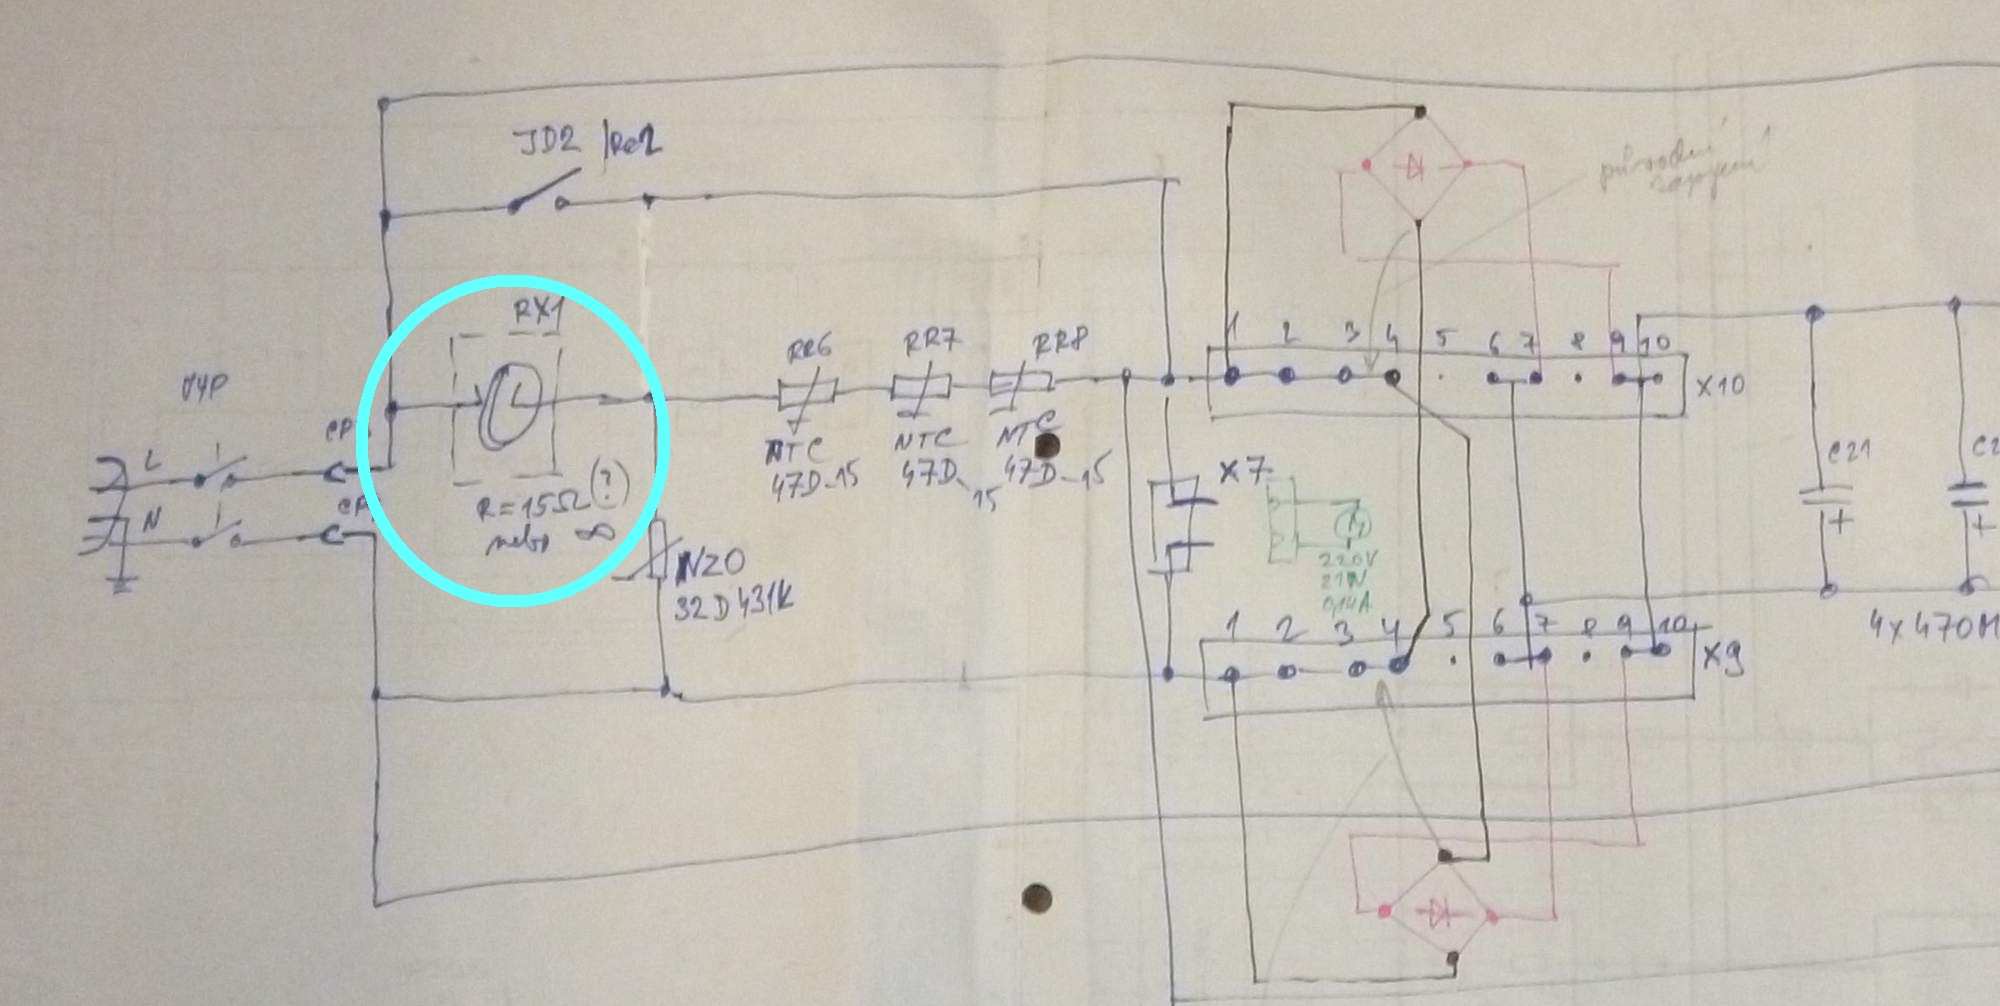 JD2 /Re2
původní
zapojení
RX1
VYP
L
N
R=15Ω(?)
nebo ∞
RR6
NTC
47D-15
RR7
NTC
47D-15
RR8
NTC
47D-15
NZO
32D431K
1 2 3 4 5 6 7 8 9 10
X10
X7
220V
21W
0,14A
1 2 3 4 5 6 7 8 9 10
X9
C21
C2
+
+
4x470M